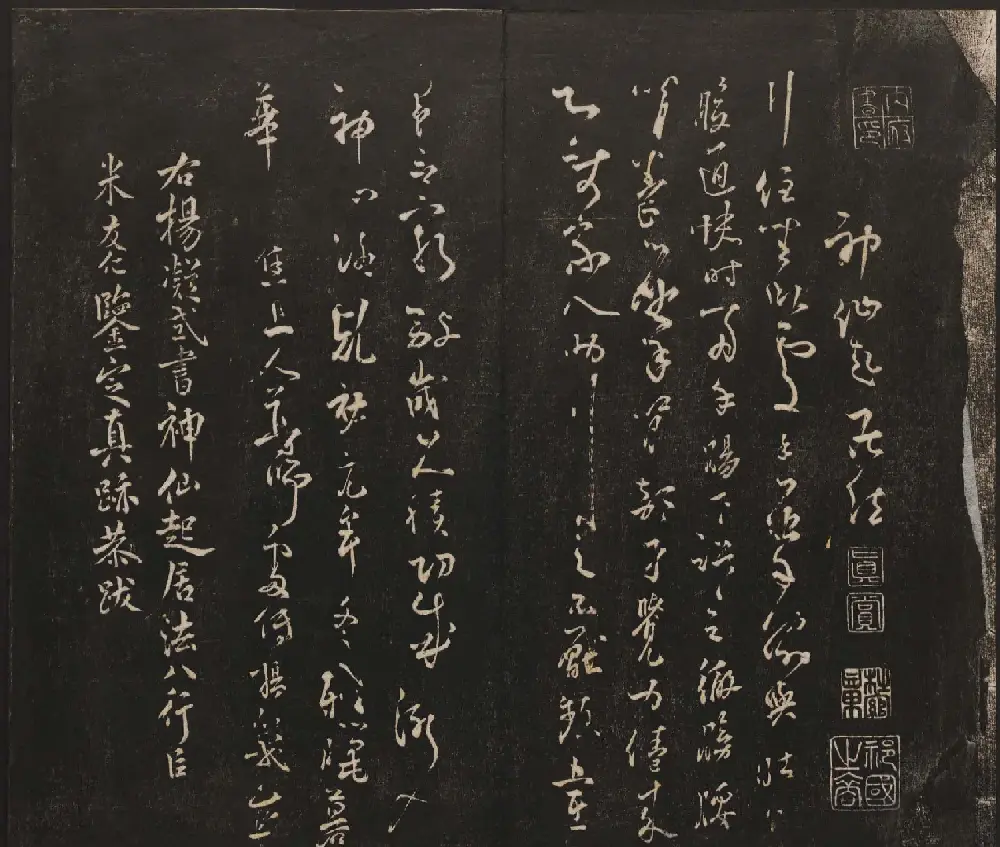 內府書印
神仙起居法
眞賞
行住坐臥處手摩脅與肚心
腹通快時兩手腸下踞踞之徹膀腰
背拳摩腎部才覺力倦來
即使家人助行之不厭頻晝
夜無窮數歲久積功成漸入
神仙路乾祐元年冬殘臘暮
華焦上人尊師處傳楊凝式
右楊凝式書神仙起居法八行臣
米友仁鑒定真跡恭跋